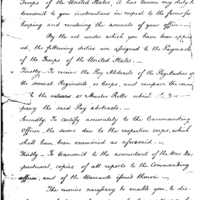 Troops of the United States, it has become my duty to
transmit to you instructions in respect to the forms for
keeping and rendering the accounts of your office.
By the act under which you have been appoint
ed, the following duties are assigned to the Paymaster
of the Troops of the United States.
Firstly. To receive the Pay Abstracts of the Paymasters of
the several Regiments or Corps, and compare the same
to the returns or Muster Rolls which
pany the said Pay abstracts.
Secondly. To certify accurately to the Commanding
Officer, the sums due to the respective corps, which
shall have been examined as aforesaid.
Thirdly. To transmit to the accountant of the War De
partment, copies of all reports to the Commanding
officer, and of the Warrants issued thereon.
The monies necessary to enable you, to dis